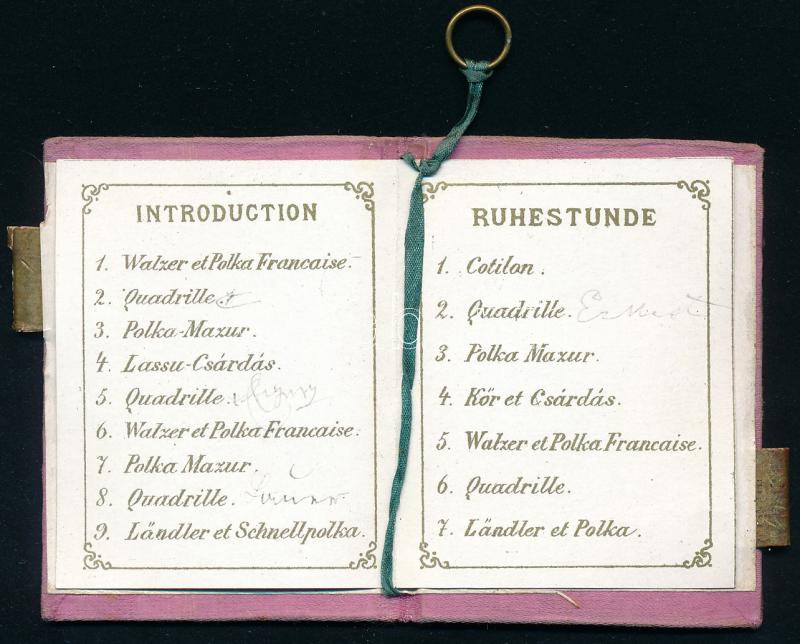 INTRODUCTION
1. Walzer et Polka Francaise.
2. Quadrille.
3. Polka-Mazur.
4. Lassu-Csárdás.
5. Quadrille.
6. Walzer et Polka Francaise.
7. Polka Mazur.
8. Quadrille.
9. Ländler et Schnellpolka.
RUHESTUNDE
1. Cotilon.
2. Quadrille.
3. Polka Mazur.
4. Kőr et Csárdás.
5. Walzer et Polka Francaise.
6. Quadrille.
7. Ländler et Polka.